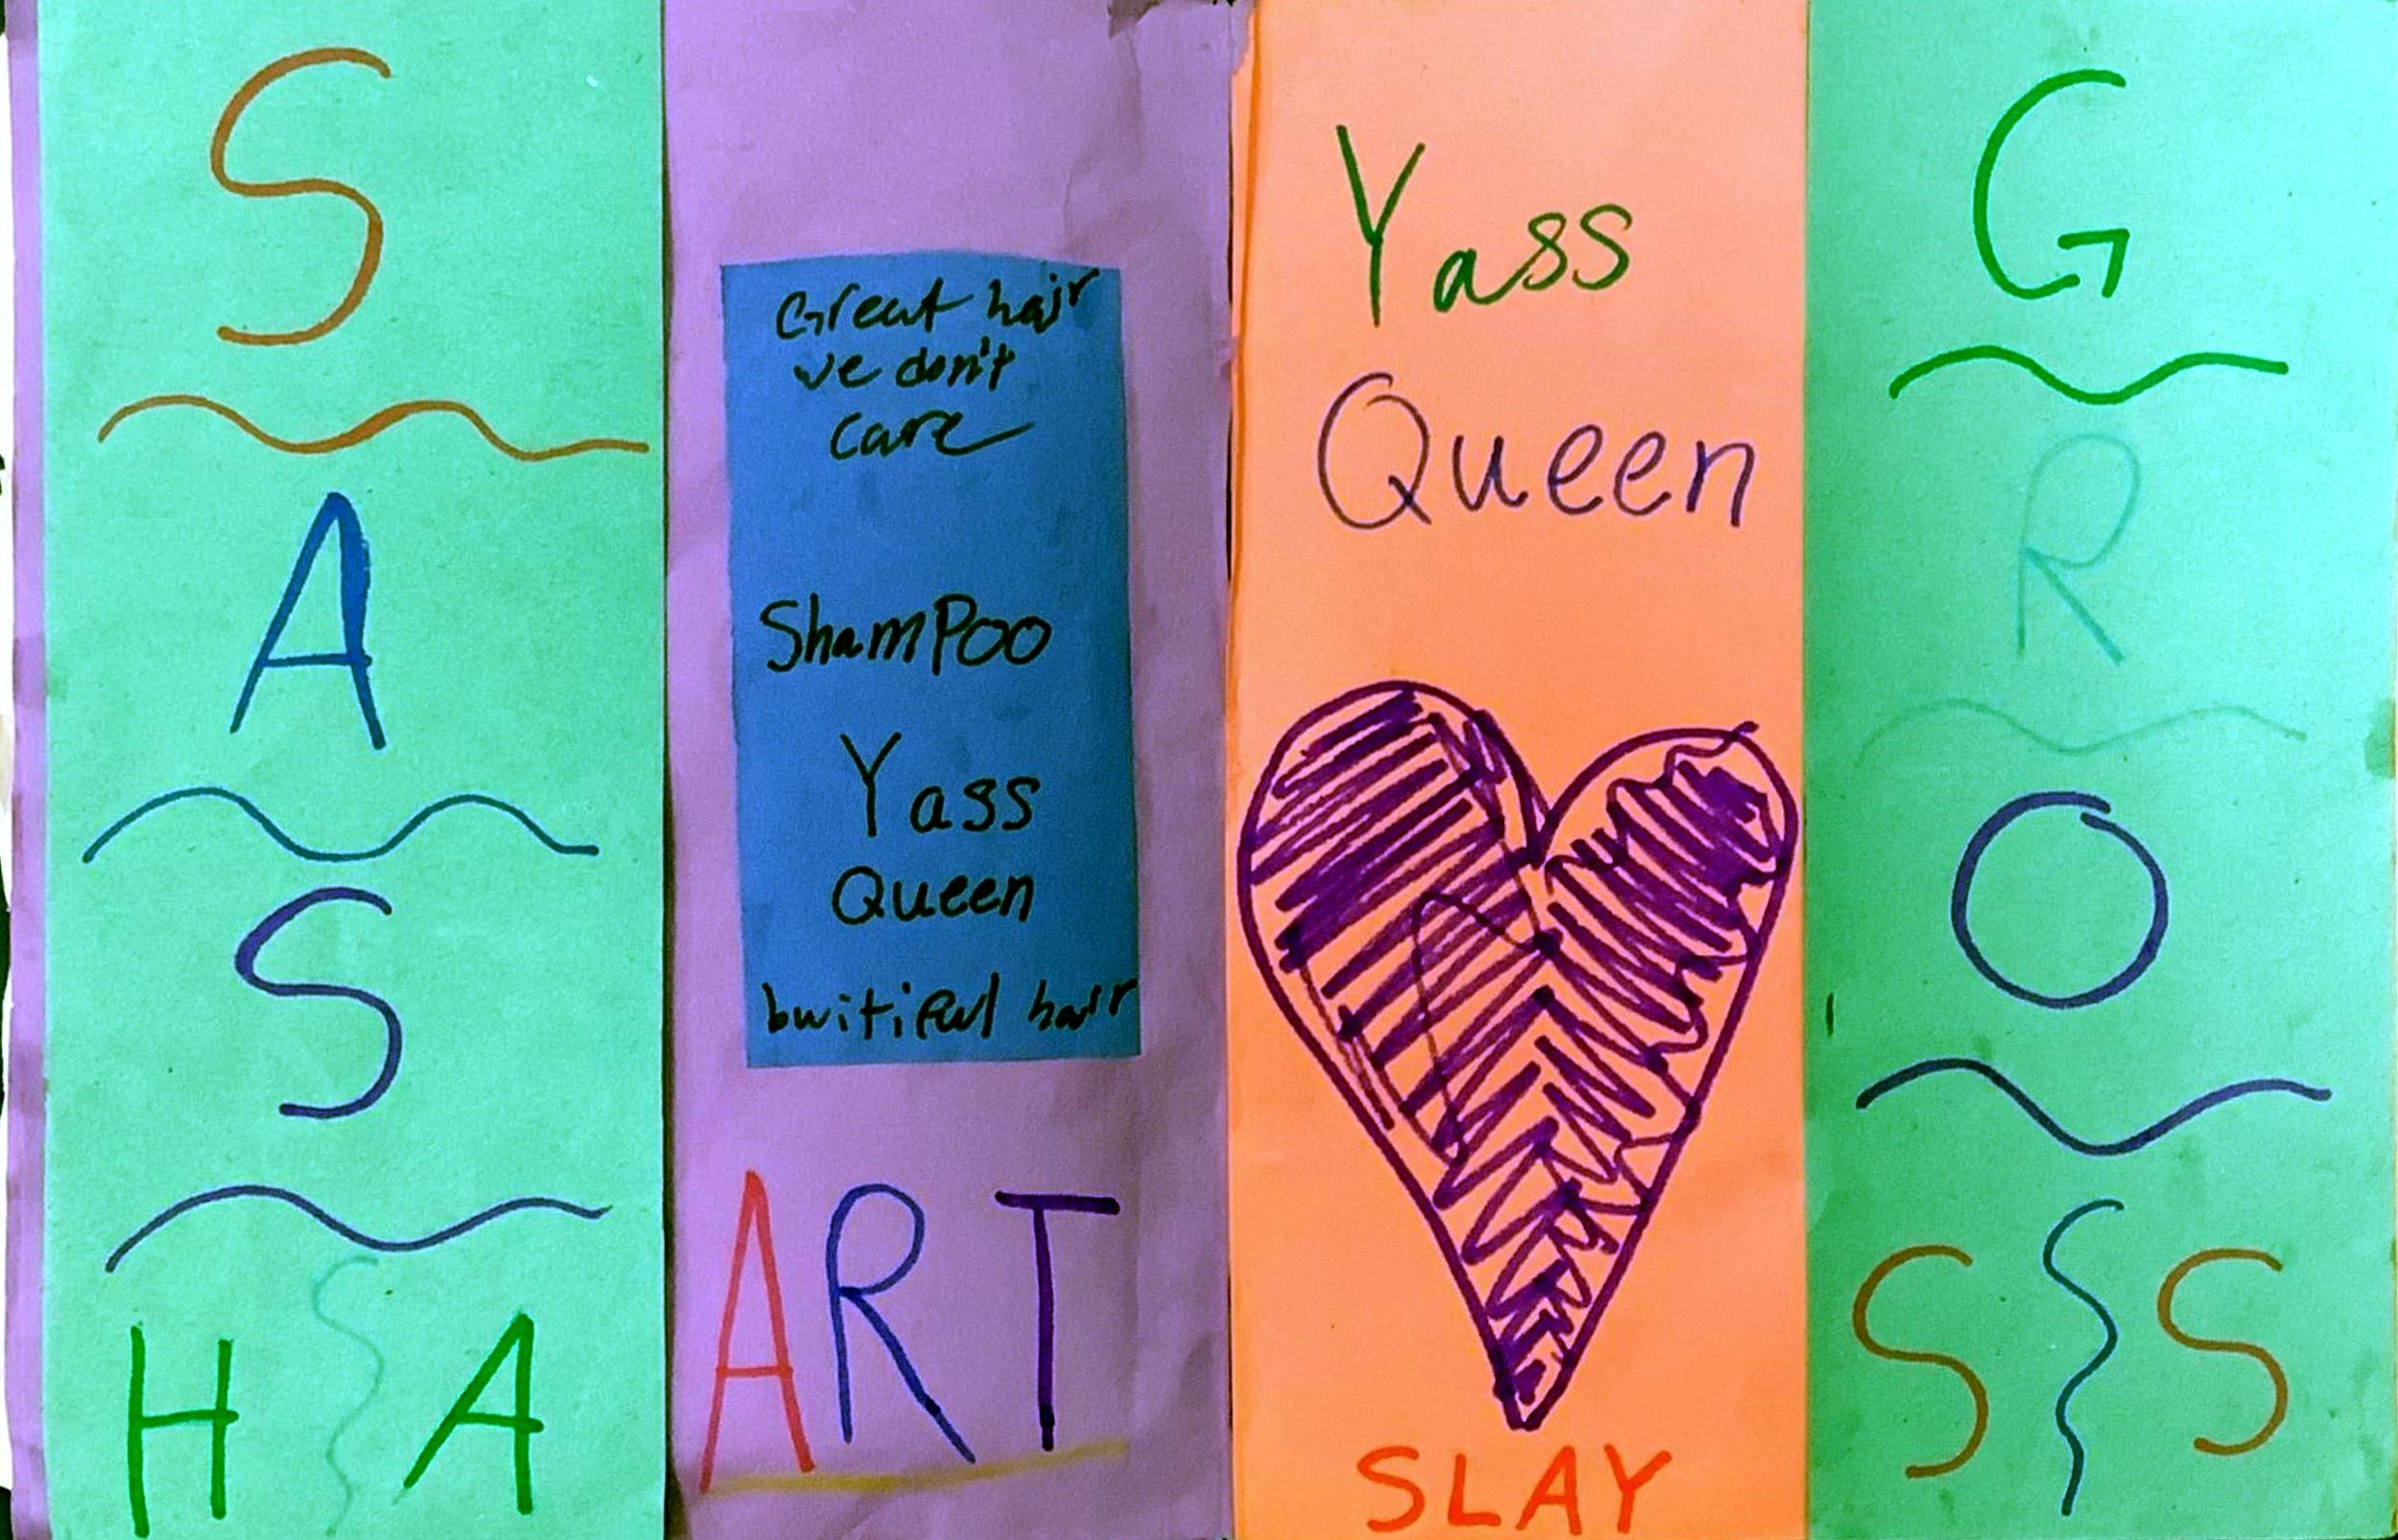 S
A
S
H A
Great hair
we don't
care
ShamPoo
Yass
Queen
bwitiful hair
ART
Yass
Queen
SLAY
G
R
O
S S